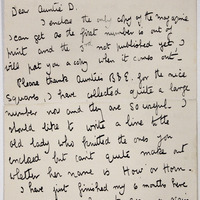 Dear Auntie D.
I enclose the only copy of the magazine
I can get as the first number is out of
print and the not published yet, I
will post you a copy when it comes out—
Please thank Aunties G.B.E. for the nice
Squares, I have collected quite a large
number now and they are so useful. I
should like to write a line to the
old lady who knitted the ones you
enclosed but cant quite make out
whether her name is How or Horn.
I have just finished my 6 months here